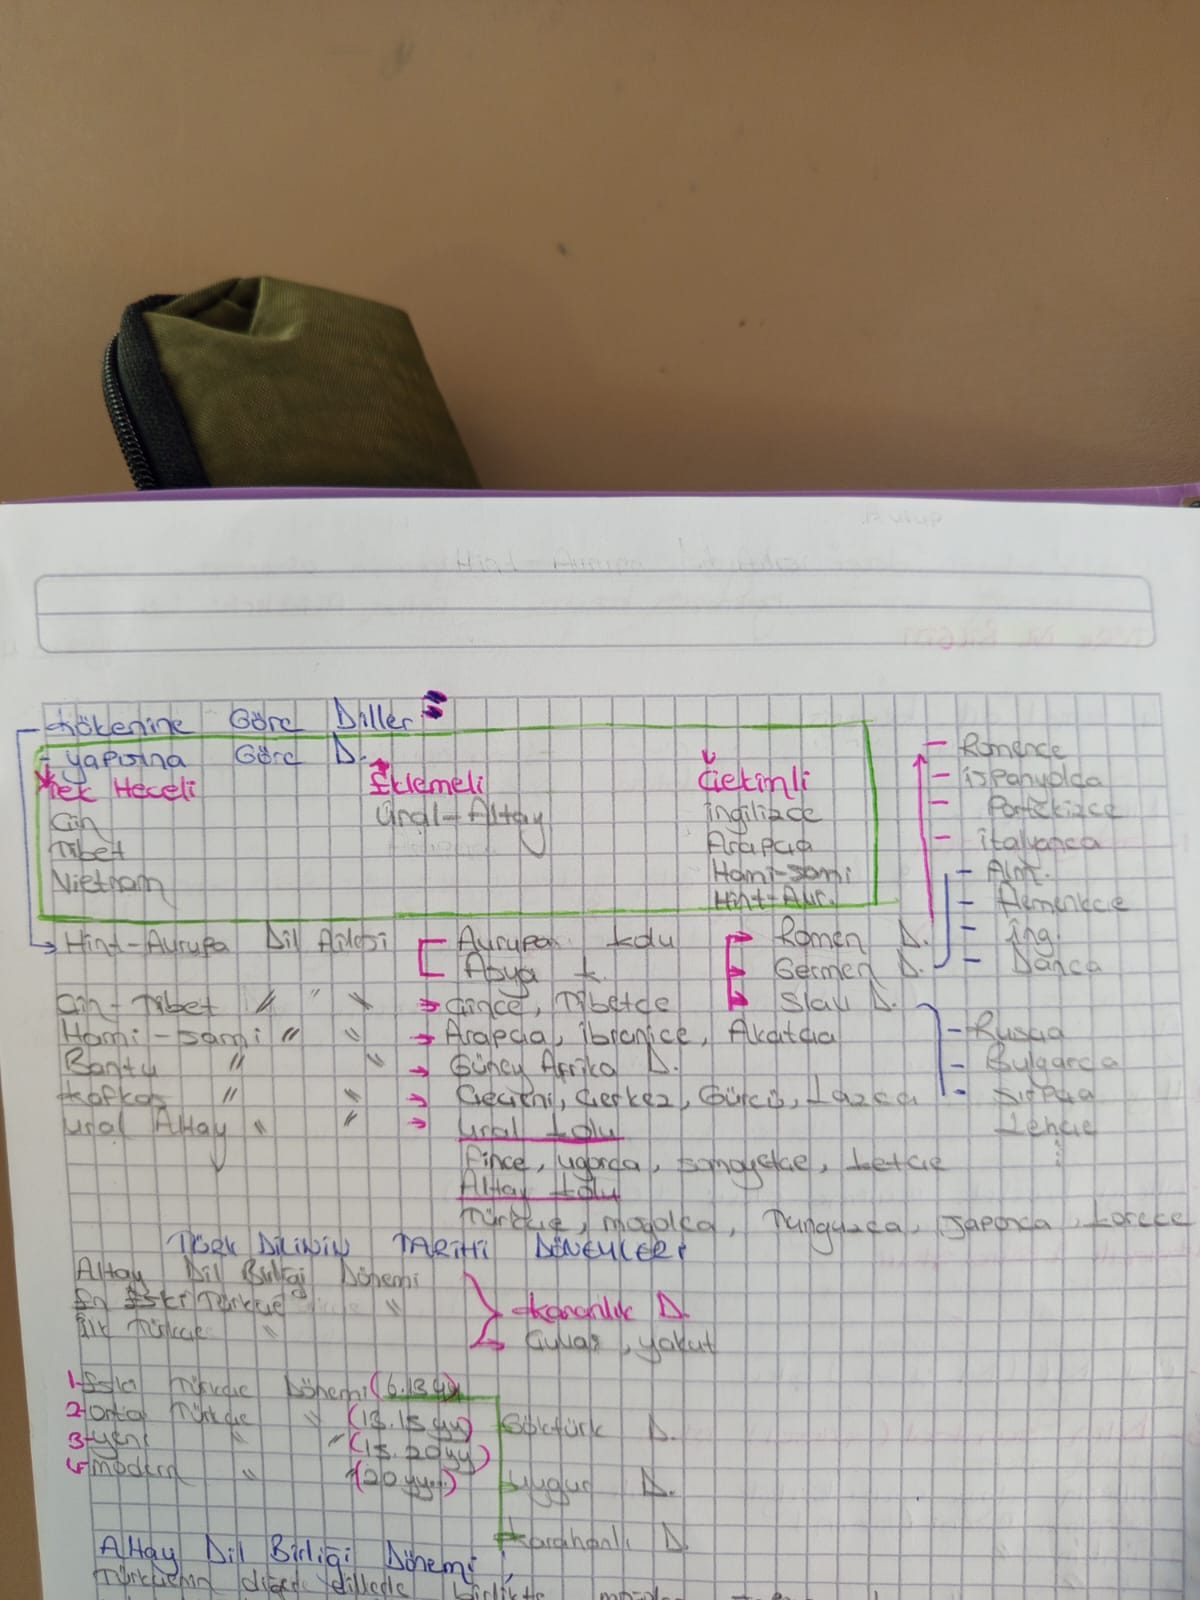 Kökenine Göre Diller:
- Yapısına Göre D.
Tek Heceli Eklemeli Çekimli
Çin Ural-Altay İngilizce
Tibet Arapça
Vietnam Hami-Sami
Hint-Avr.
- Romence
- İspanyolca
- Portekizce
- İtalyanca
- Alm.
- Flemenkçe
- İng.
- Danca
Hint-Avrupa Dil Ailesi Avrupa kolu Romen D.
Asya k. Germen D.
Slav D.
- Rusça
- Bulgarca
- Sırpça
Lehçe
Çin-Tibet " " " → Çince, Tibetçe
Hami-Sami " " → Arapça, İbranice, Akatça
Bantu " " → Güney Afrika D.
Kafkas " " → Çeçeni, Çerkez, Gürcü, Lazca
Ural Altay " " → Ural kolu
Fince, Ugorca, Samoyetçe,
Altay kolu
Türkçe, Mogolca, Tunguzca, Japonca, Korece
TÜRK DİLİNİN TARİHİ DÖNEMLERİ
Altay Dil Birliği Dönemi
En Eski Türkçe "
İlk Türkçe "
Karanlık D.
Çuvaş, Yakut
1-Eski Türkçe Dönemi (6.13 yy)
2-Orta Türkçe " (13.15 yy)
3-Yeni " " (15.20 yy)
4-Modern " " (20 yy...)
Göktürk D.
Uygur D.
Karahanlı D.
Altay Dil Birliği Dönemi;
Türkçenin diğer dillerle birlikte